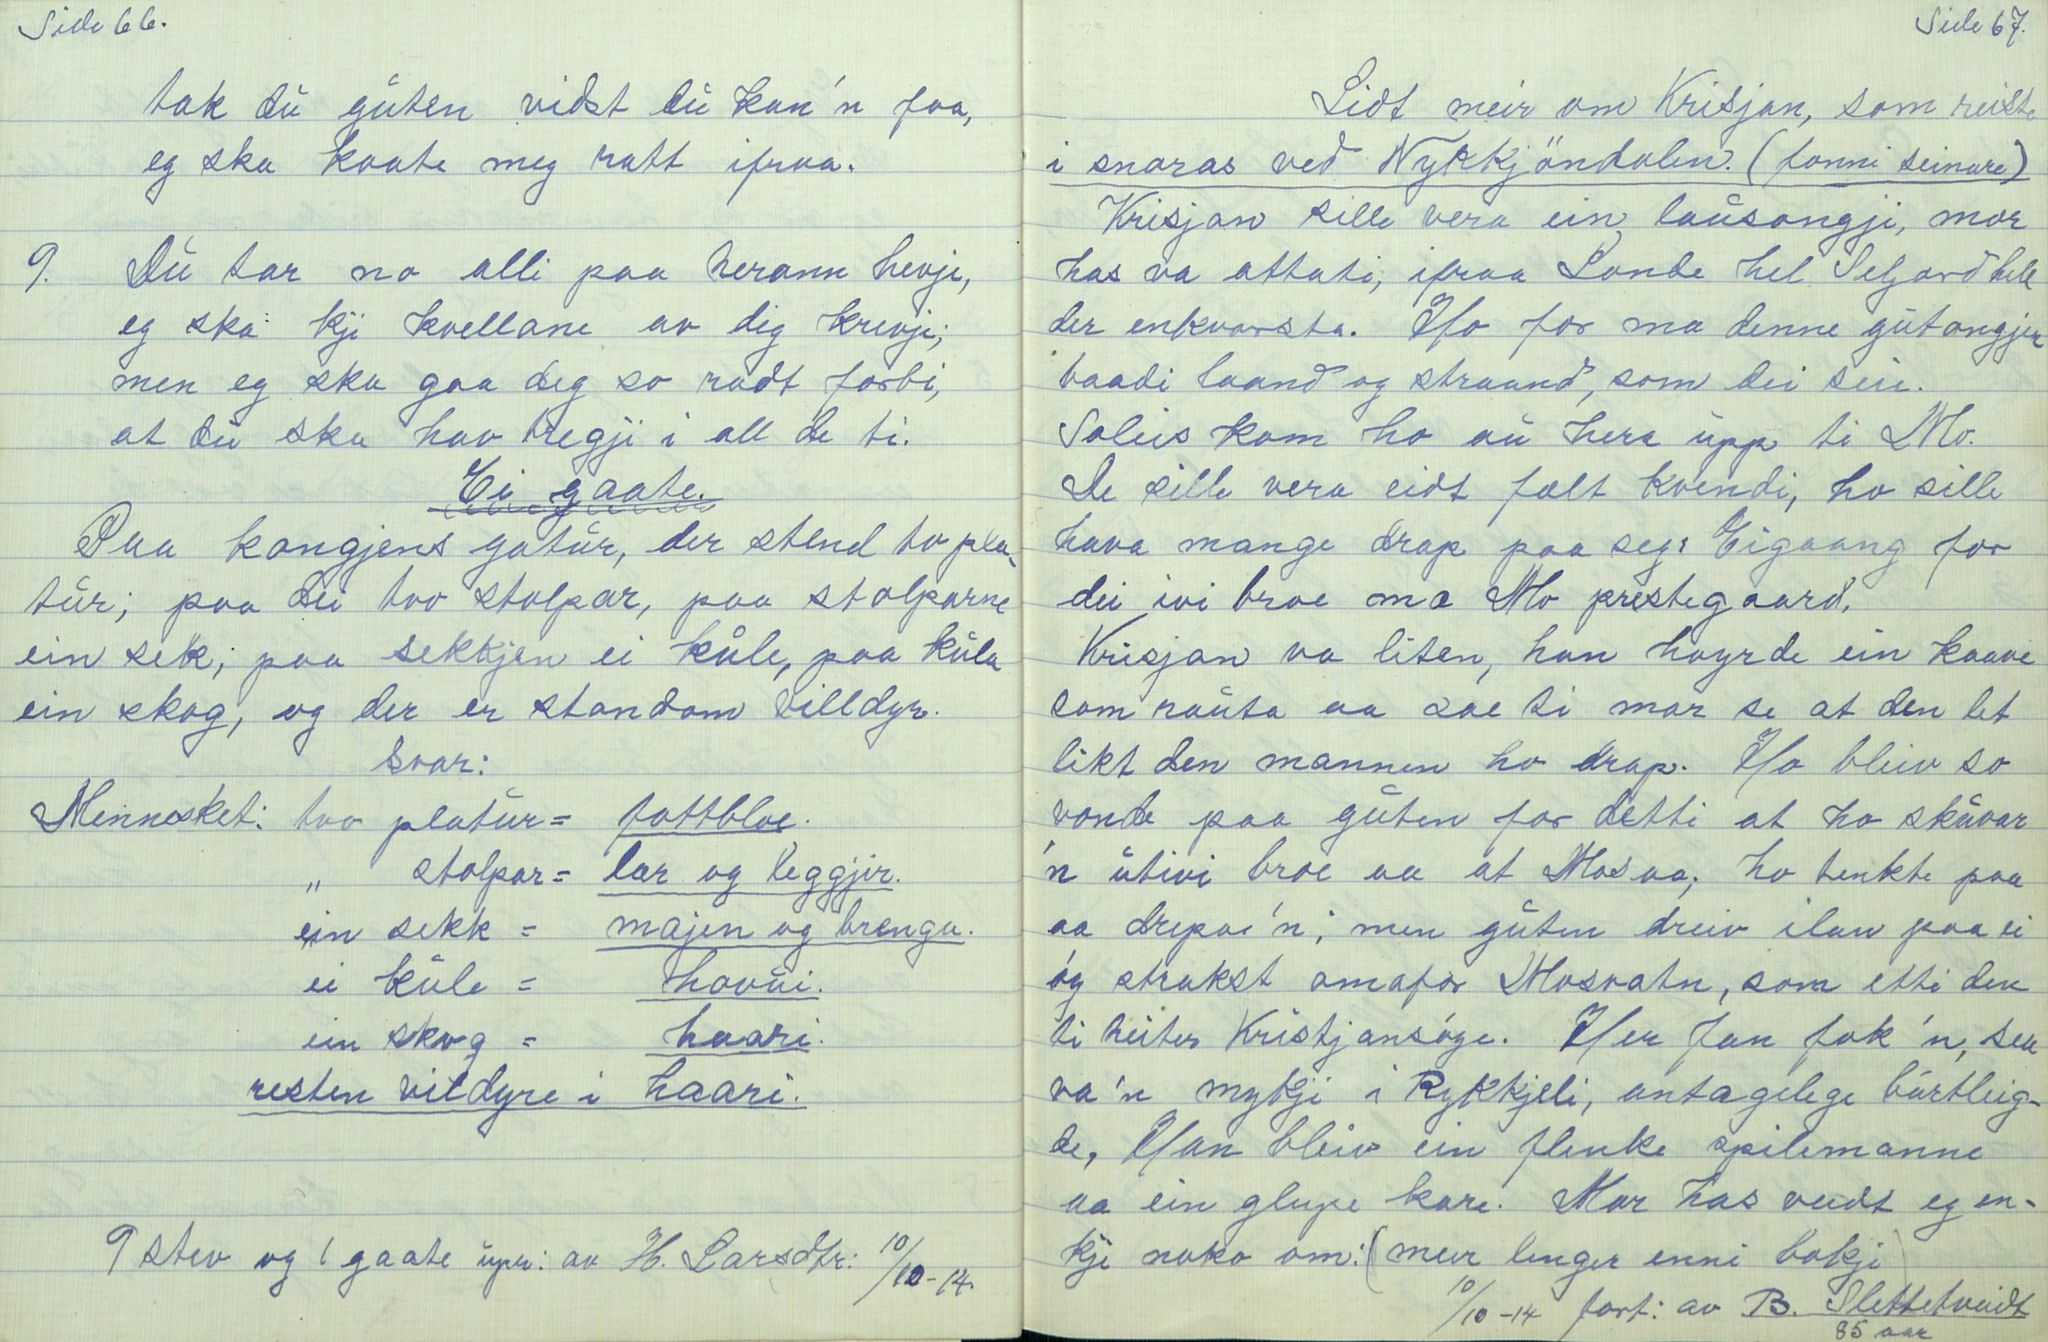 Side 66.
tak du guten vidst du kan'n faa,
eg ska kaate meg ratt ifraa.
9. Du tar no alli paa herann hevje,
eg ska kji kvellane av dig krevje;
men eg ska gaa deg so radt forbi,
at du ska hav tregji i all de ti.
Ei gaate.
Paa kongjens gatur, der stend to pla-
tur; paa dei tvo stolpar, paa stolparne
ein sek; paa sekkjen ei kule, paa kula
ein skog, og der er standom villdyr.
Svar:
Mennesket: tvo platur = fottbloe.
" stolpar = lær og leggjir.
ein sekk = majen og brenga.
ei kule = hovui.
ein skog = haari.
resten vildyre i haari.
9 stev og 1 gaate upr: av H. Larsdtr: 10/10-14.
Side 67.
Lidt meir om Krisjan, som reiste
i snaras ved Nykkjöndalen. (fonni seinare)
Krisjan sille vera ein lausongji, mor
has va attati, ifraa Lande hel Seljord hell
der enkvorsta. Ho for ma denne gutongjen
baadi laand og straand, som dei seie.
Soleis kom ho au hera upp ti Mo.
De sille vera eidt fælt kvendi, ho sille
hava mange drap paa seg: Eigaang for
dei ivi broe ma Mo prestegaard.
Krisjan va liten, han höyrde ein kaave
som rauta aa sae ti mor se at den let
likt den mannen ho drap. Ho bleiv so
vonde paa guten for detti at ho skuvar
'n utivi broe aa at Mosaa; ho tenkte paa
aa drepa'n; men guten dreiv ilan paa ei
óg strakst omafor Mosvatn, som etti den
ti heiter Kristjansóge. Her fan fok'n, sea
va'n mykji i Rykkjeli, antagelege burtleig-
de, Han bleiv ein flinke spilemanne
aa ein glupe kare. Mor has veidt eg en-
kji noko om: (meir lenger enni bokji
10/10-14 fort: av B. Slettetveidt
85 aar